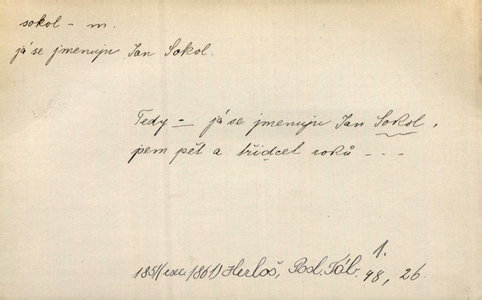 sokol – m.
já se jmenuju Jan Sokol.
Tedy – já se jmenuju Jan Sokol,
pem pět a třidcet roků – – –
1851 (exc. 1861) Herloš, Posl. Táb. 1.
98, 26.